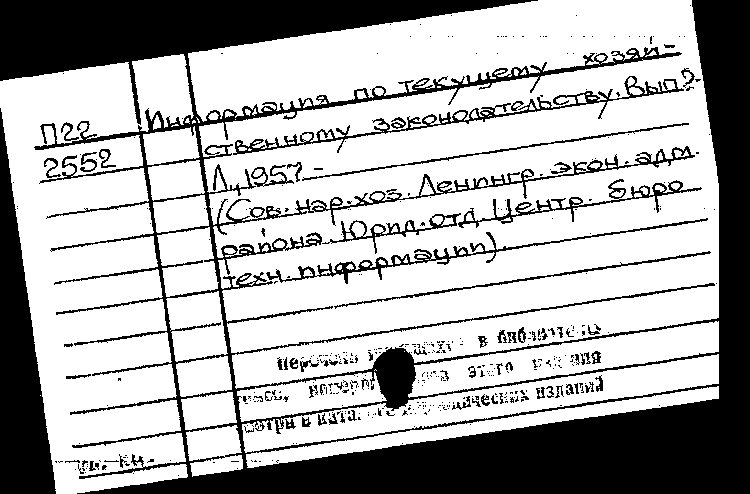 Информация по текущему хозяй-
П22 ственному законодательству. Вып.2.
2552 Л., 1957-
(Сов. нар. хоз. Ленингр. экон. адм.
района. Юрид. отд. Центр. бюро
техн. информации).
Перечень в библиотеке
этого издания
смотри в периодических изданий